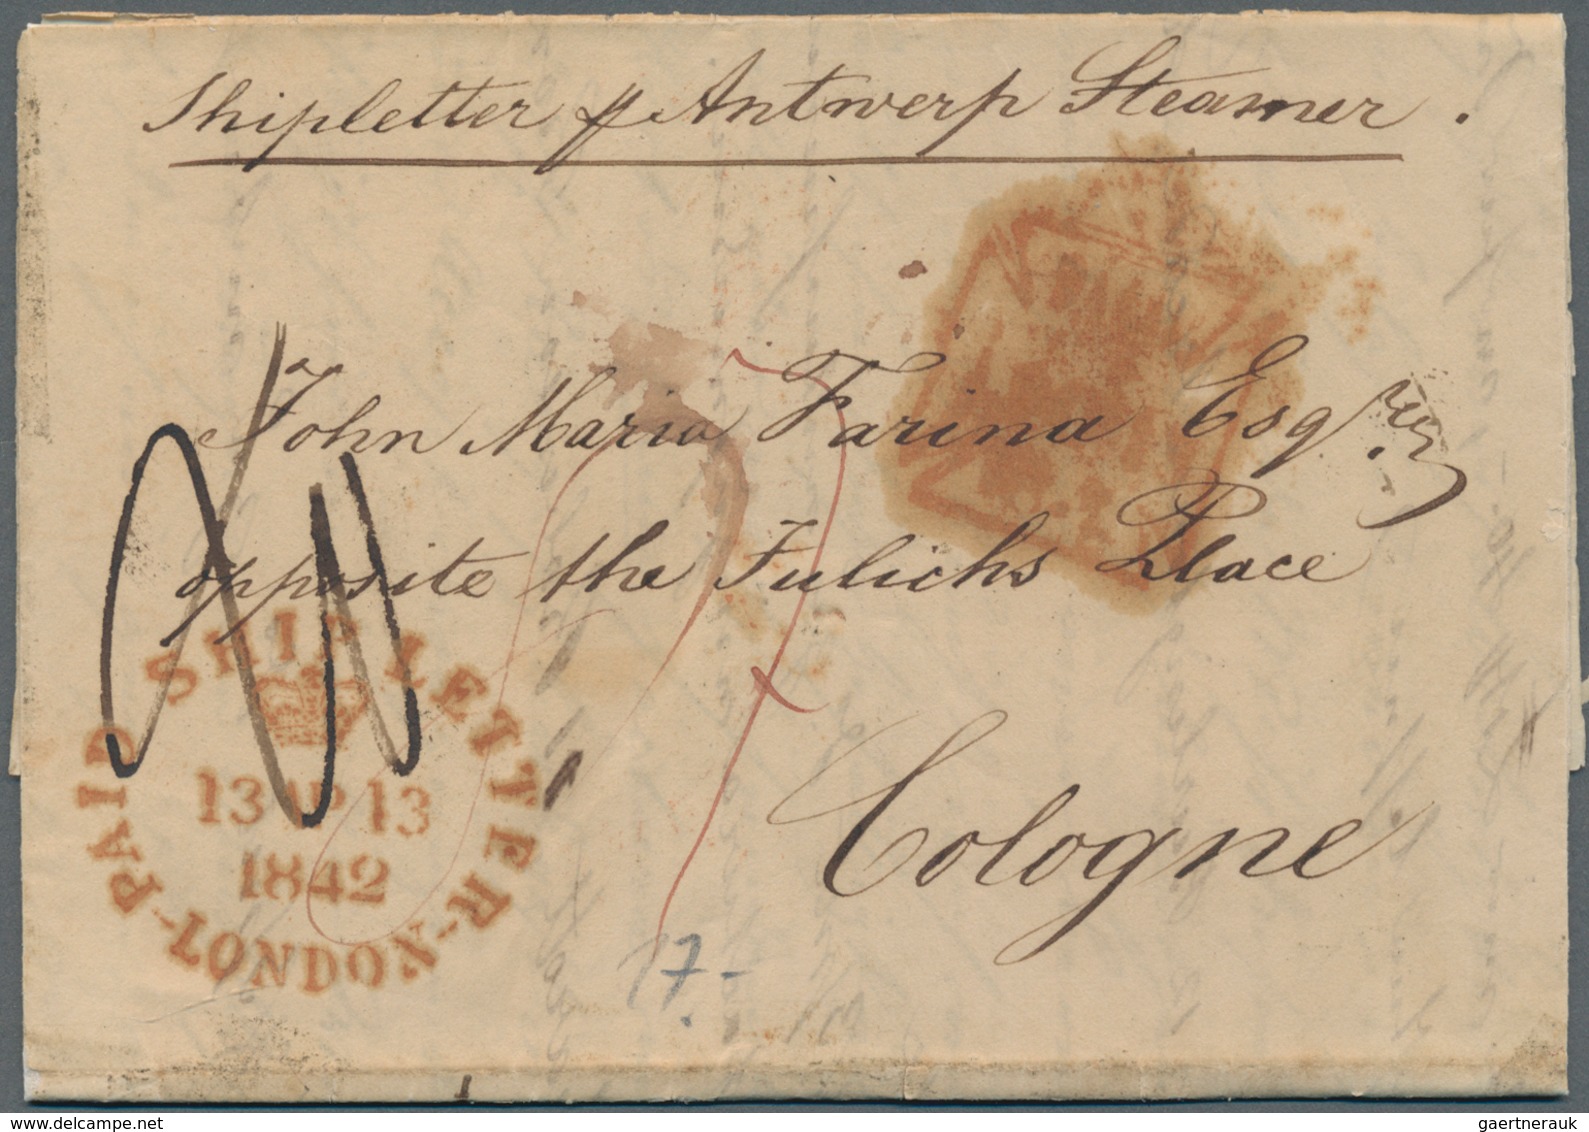 Shipletter p Antwerp Steamer.
John Maria Farina Esqre.
opposite the Julichs Place
Cologne
PAID SHIP LETTER
13 AP 13
1842
-LONDON-
17.-
www.delcampe.net
gaertnerauk